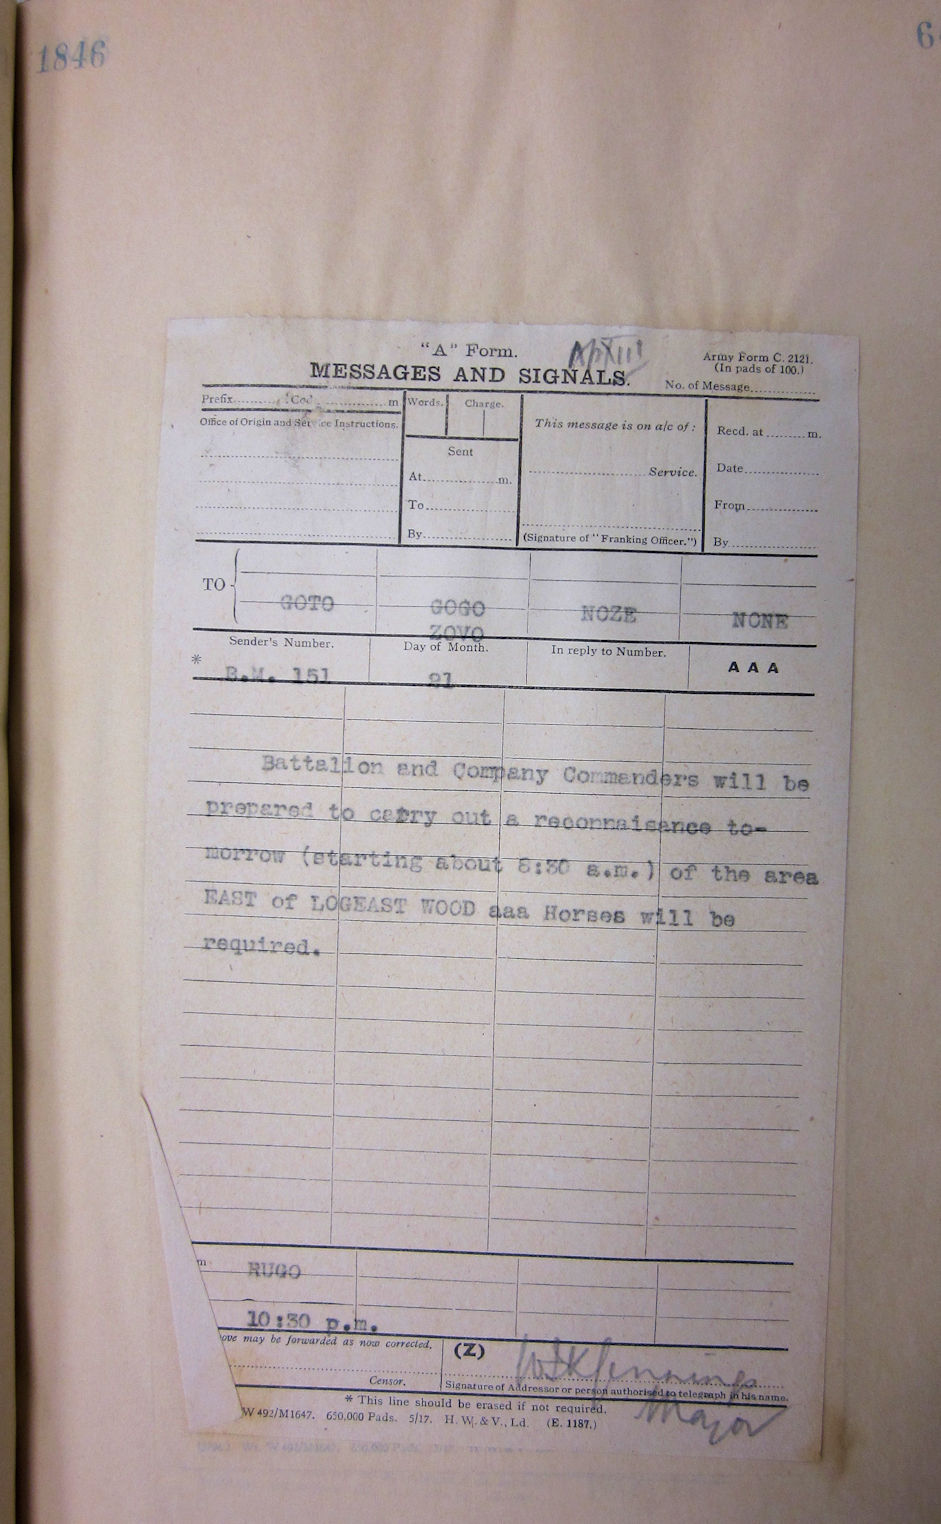 1846
6
"A" Form.
Ap XIII
Army Form C. 2121.
(In pads of 100.)
MESSAGES AND SIGNALS.
No. of Message
Prefix Cod m
Words. Charge.
This message is on a/c of :
Recd. at m.
Office of Origin and Service Instructions.
Sent
Service.
Date
At m.
To
From
By
(Signature of "Franking Officer.")
By
TO
GOTO GOGO NOZE NONE
ZOVO
Sender's Number. Day of Month. In reply to Number.
* B.M. 151 21 AAA
Battalion and Company Commanders will be
prepared to carry out a reconnaisance to-
morrow (starting about 8:30 a.m.) of the area
EAST of LOGEAST WOOD aaa Horses will be
required.
RUGO
10:30 p.m.
ove may be forwarded as now corrected.
(Z)
Jennings
Censor.
Signature of Addressor or person authorised to telegraph in his name.
* This line should be erased if not required.
Major
W 492/M1647. 650,000 Pads. 5/17. H. W. & V., Ld. (E. 1187.)